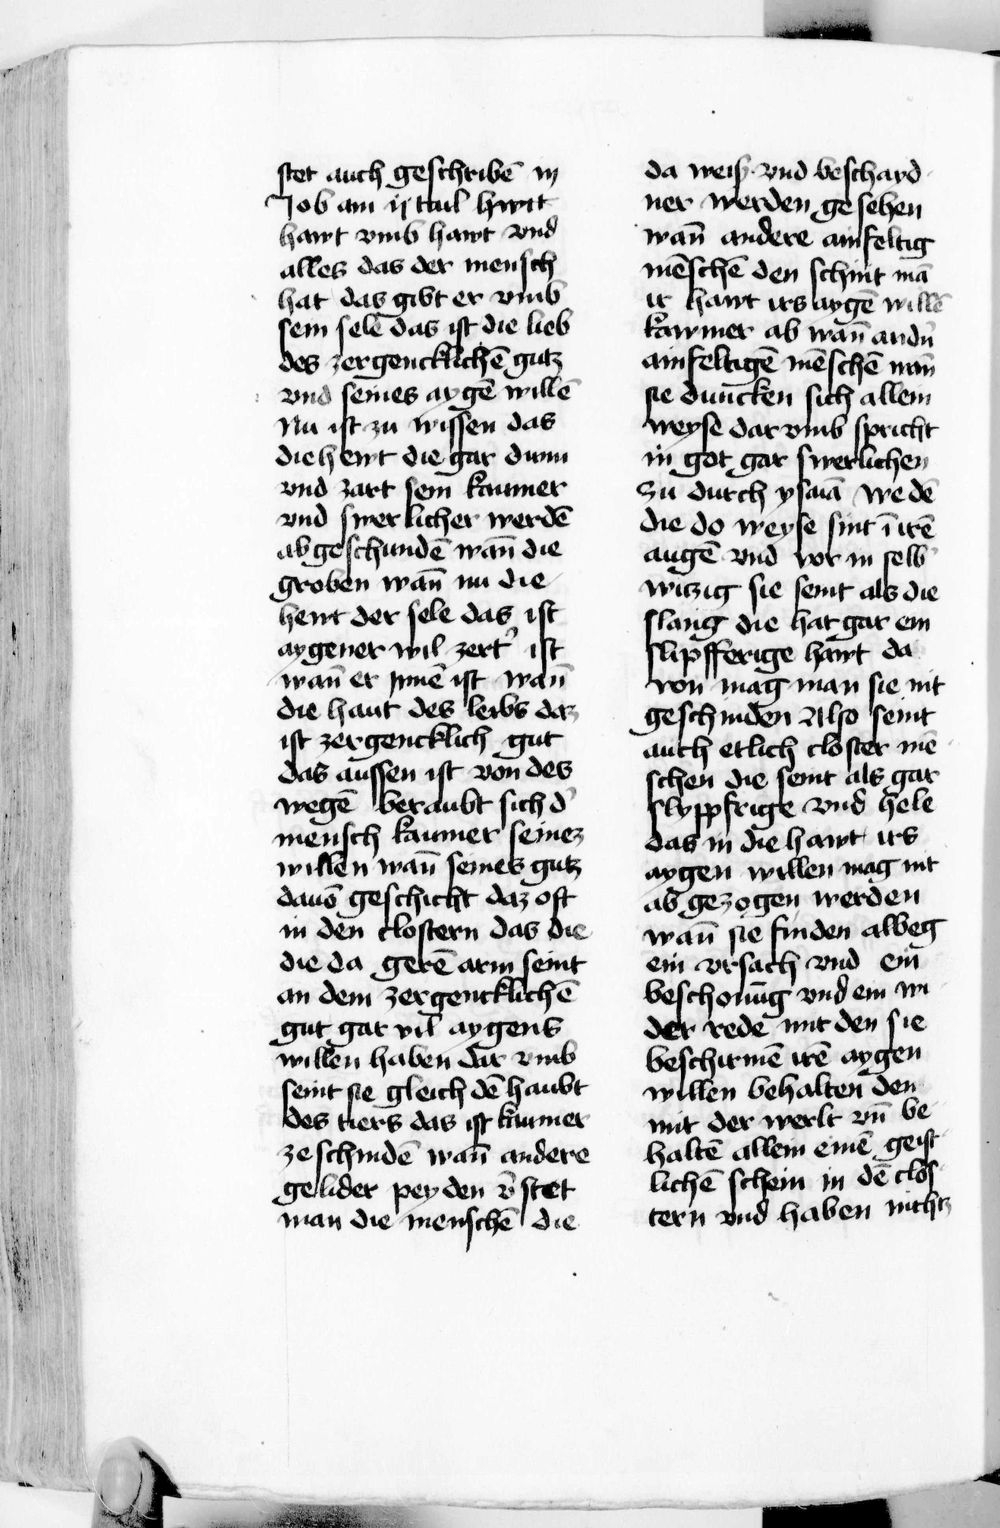 stet auch geschribē in
Job am ij tail hwtt
hawt vmb hawt vnd
alles das der mensch
hat das gibt er vmb
sein sele das ist die lieb
des zergencklichē gutz
vnd seines aygē willē
Nu ist zu wissen das
die hewt die gar dunn
vnd zart sein kaumer
vnd swerlicher werdē
ab geschundē wañ die
groben wañ nu die
hewt der sele das ist
aygener wil zert' ist
wañ er ynnē ist wañ
die haut des leibs daz
ist zergencklich gut
das aussen ist von des
wegē beraubt sich d'
mensch kaumer seinez
willen wañ seines gutz
dauō geschicht daz oft
in den clostern das die
die da gerē arm seint
an dem zergencklichē
gut gar vil aygens
willen haben dar vmb
seint sie gleich dē haubt
des tiers das ist kaumer
ze schindē wañ andere
gelider pey den v̄stet
man die menschē die
da weiß vnd beschayd
ner werden gesehen
wañ andere ainfeltig
mēschē den schint mā
ir hawt irs aygē willē
kawmer ab wañ andn̄
ainfeltigē mēschē wañ
sie duncken sich allein
weyse dar vmb spricht
in got gar swerlichen
zu durch ysaiā We dē
die do weyse sint ī irē
augē vnd vor in selb'
witzig sie seint als die
slang die hat gar ein
slipfferige hawt da
von mag man sie nit
geschinden Also seint
auch etlich closter mē
schen die seint als gar
slyppfrige vnd hele
das in die hawt irs
aygen willen mag nit
ab gezogen werden
wañ sie finden alweg
ein vrsach vnd ein
beschonūg vnd ein wi
der rede mit den sie
beschirmē irē aygen
willen behalten den
mit der werlt vn̄ be
haltē allein einē geist
lichē schein in dē clos
tern vnd haben nichtz